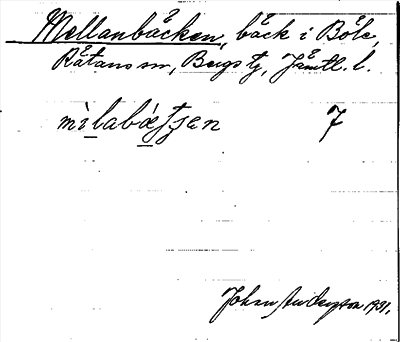 Mellanbäcken, bäck i Böle,
Rätans sn, Bergs tg, Jämtl. l.
mìlabǽtjen 7
Johan Anderzon 1931.